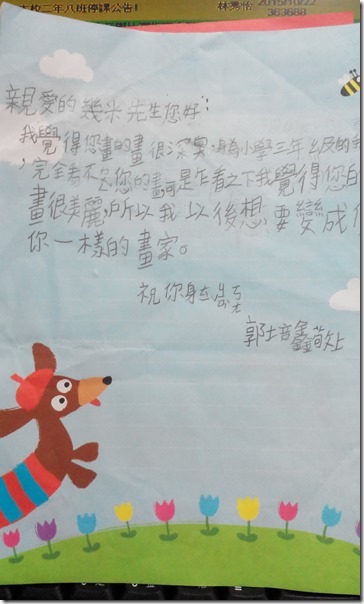 本校二年八班停課公告! 林秀怡 2015/10/22
363688
親愛的幾米先生您好:
我覺得您畫的畫很深奧,身為小學三年級的我
,完全看不 您的畫 是乍看之下我覺得您的
畫很美麗,所以我以後想要變成
你一樣的畫家。
祝你身
郭士 鑫敬上